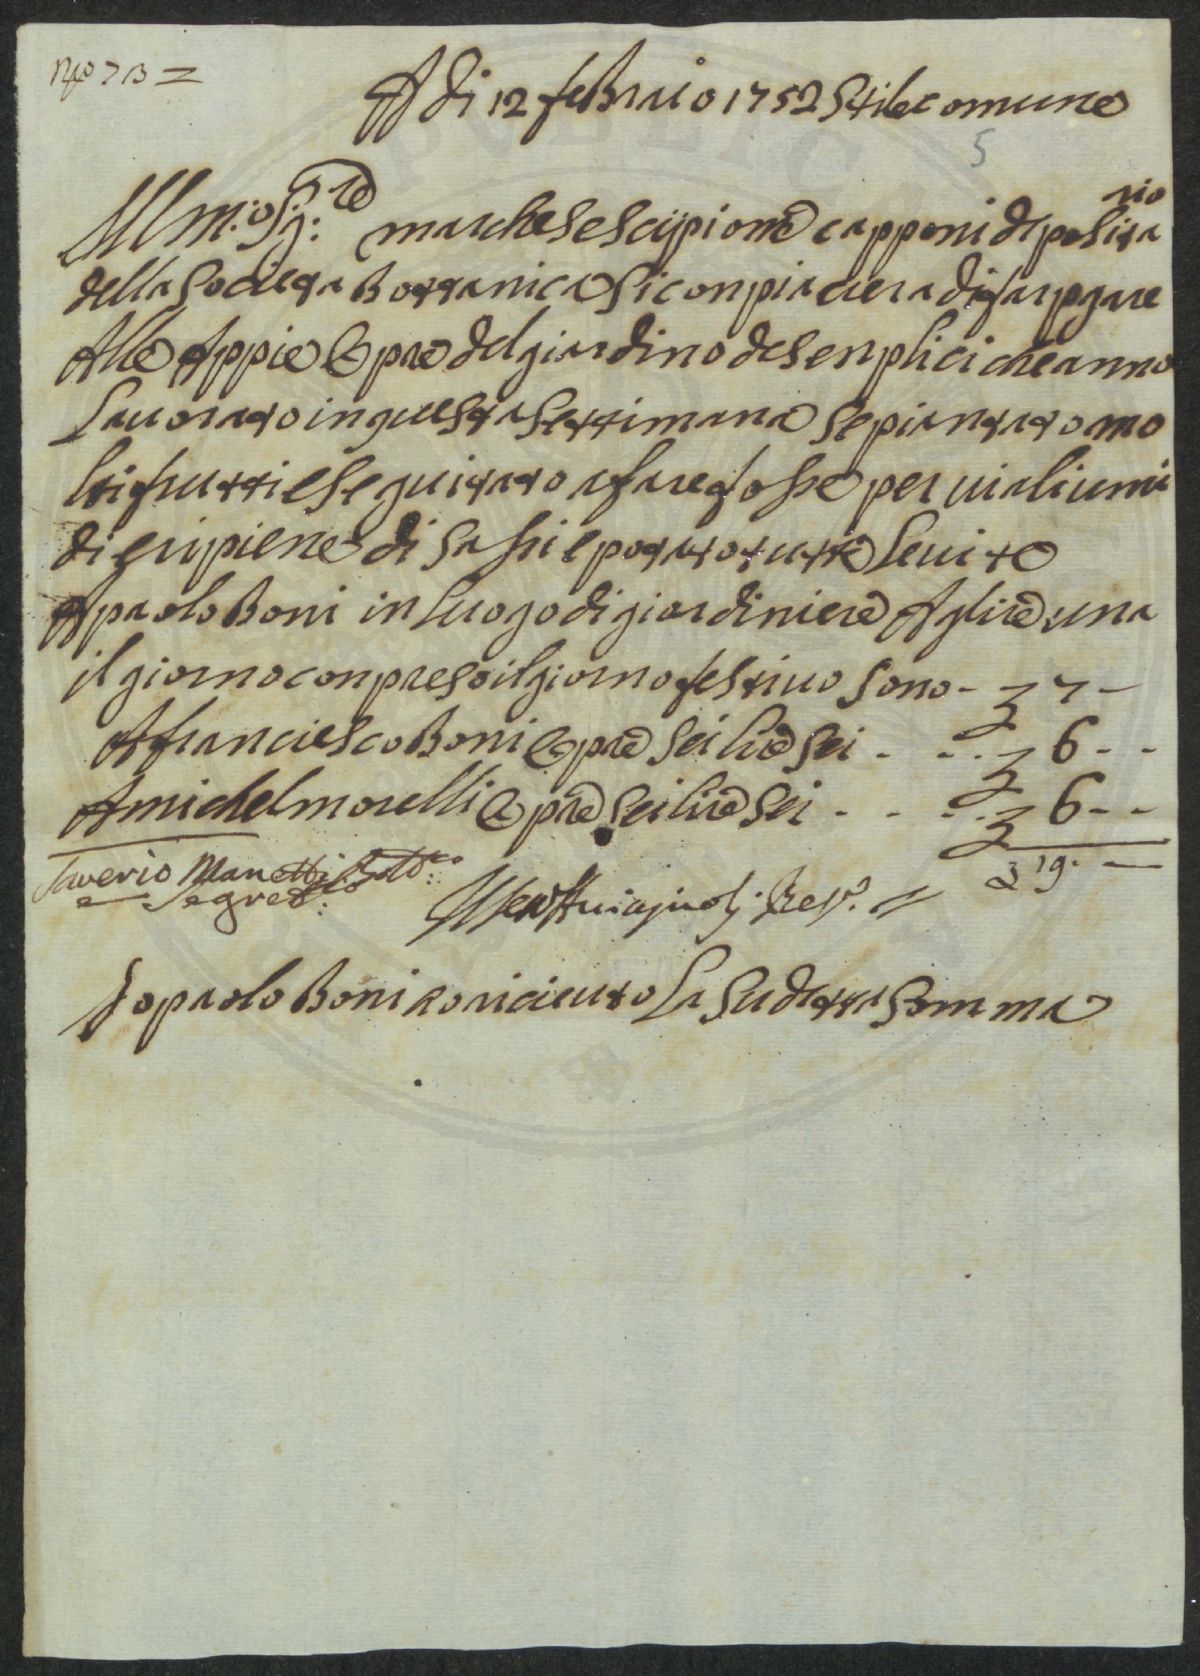 No 73 =
A di 12 febraio 1752 stile comune
5
Illm:o Sig:re marchese scipione capponi deposita rio
della Societa Bottanica Si conpiaciera di far pgare
Alle Appie Opre del giardino de senplici che anno
Lauorato in questa settimana Se piantato mo
lti frutti e seguitato a fare fosse per uiali umi
di e ripiene di sassi e potato tutte Le uite
A paolo Boni in Luogo di giardiniere A lire una
il giorno conpreso il giorno festiuo sono - £ 7 -
A franciesco Boni Opre sei lire sei - - - £ 6 - -
A michel morelli Opre sei lire sei - - - £ 6 - -
£ 19. —
Saverio Manetti Sott:o
e Segret:o
Rev.
Io paolo Boni o riceuuto La Sudetta somma